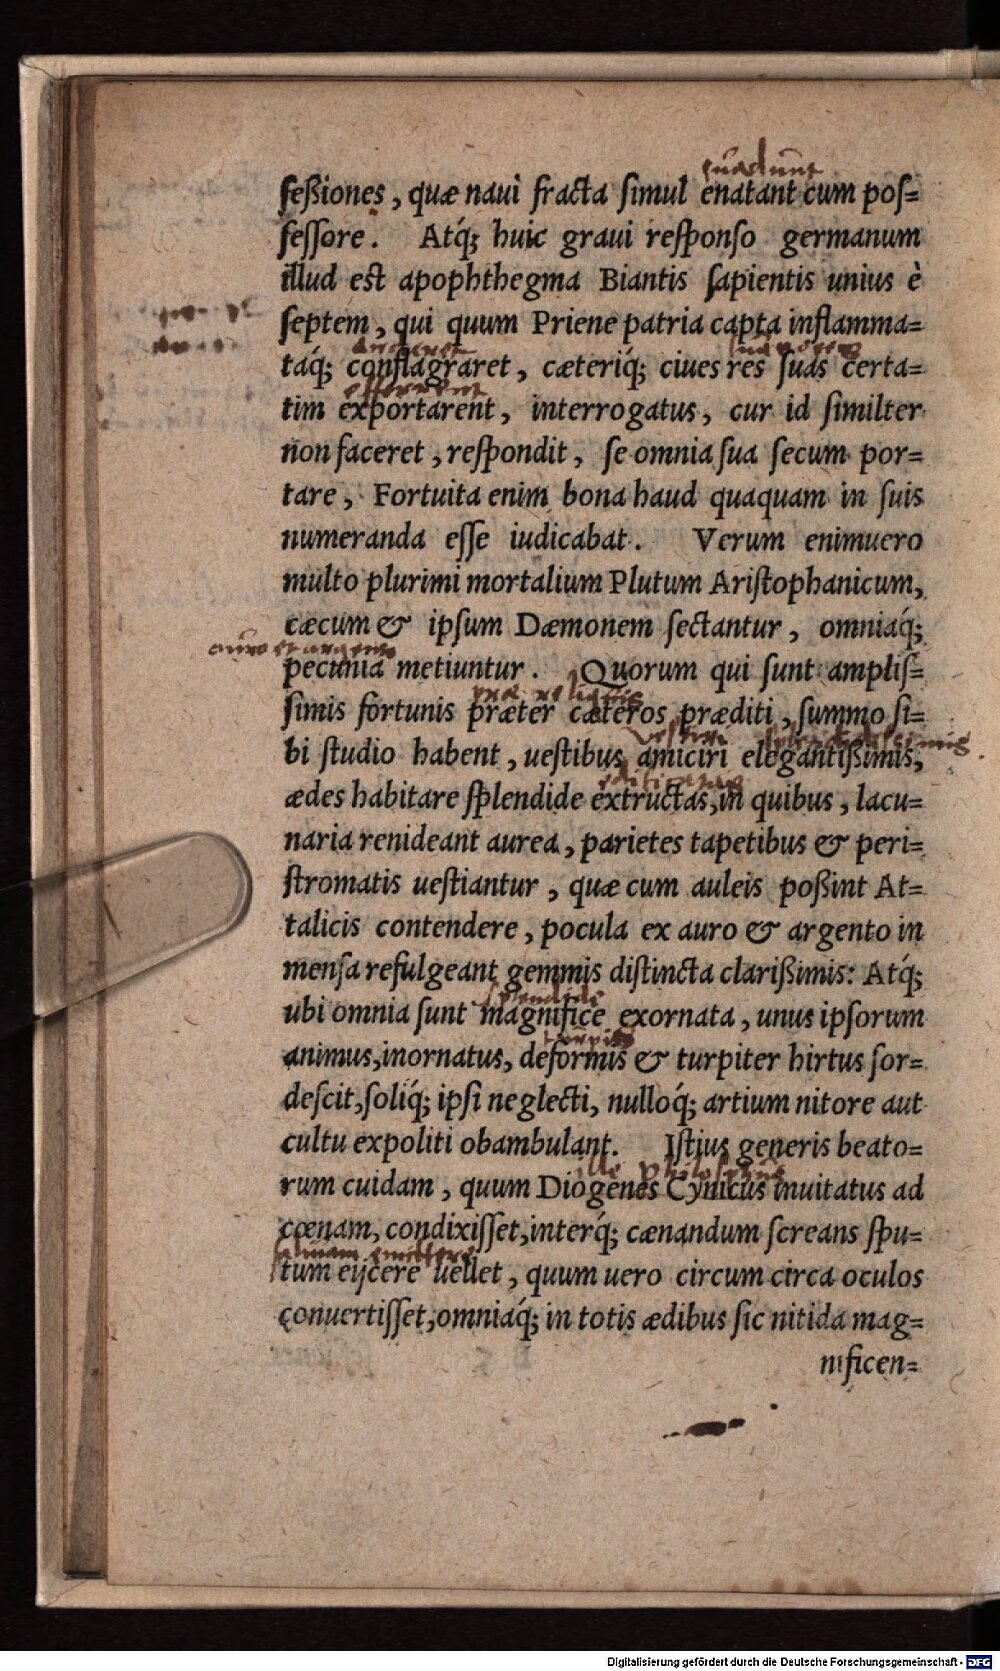 euadunt
feßiones, quæ naui fracta ſimul enatant cum poſ=
ſeſſore. Atq́; huic graui reſponſo germanum
illud eſt apophthegma Biantis ſapientis unius è
ſeptem, qui quum Priene patria capta inflamma=
arderet
taq́; conflagraret, cæteriq́; ciues res ſuas certa=
efferrent
tim exportarent, interrogatus, cur id ſimilter
non faceret, reſpondit, ſe omnia ſua ſecum por=
tare, Fortuita enim bona haud quaquam in ſuis
numeranda eſſe iudicabat. Verum enimuero
multo plurimi mortalium Plutum Ariſtophanicum,
cæcum & ipſum Dæmonem ſectantur, omniaq́;
auro et argento
pecunia metiuntur. Quorum qui ſunt ampliſ=
præ reliquis
ſimis fortunis præter cæteros præditi, ſummo ſi=
veſtiri
bi ſtudio habent, ueſtibus amiciri elegantißimis,
edificatas
ædes habitare ſplendide extructas, in quibus, lacu=
naria renideant aurea, parietes tapetibus & peri=
ſtromatis ueſtiantur, quæ cum auleis poßint At=
talicis contendere, pocula ex auro & argento in
menſa refulgeant gemmis diſtincta clarißimis: Atq́;
ſplendide
ubi omnia ſunt magnifice exornata, unus ipſorum
turpis
animus, inornatus, deformis & turpiter hirtus ſor=
deſcit, ſoliq́; ipſi neglecti, nulloq́; artium nitore aut
cultu expoliti obambulant. Iſtius generis beato=
ille philoſophus
rum cuidam, quum Diogenes Cynicus inuitatus ad
cœnam, condixiſſet, interq́; cænandum ſcreans ſpu=
ſaliuam emittere
tum eijcere uellet, quum uero circum circa oculos
conuertiſſet, omniaq́; in totis ædibus ſic nitida mag=
nificen=
Digitalisierung gefördert durch die Deutsche Forschungsgemeinschaft - DFG